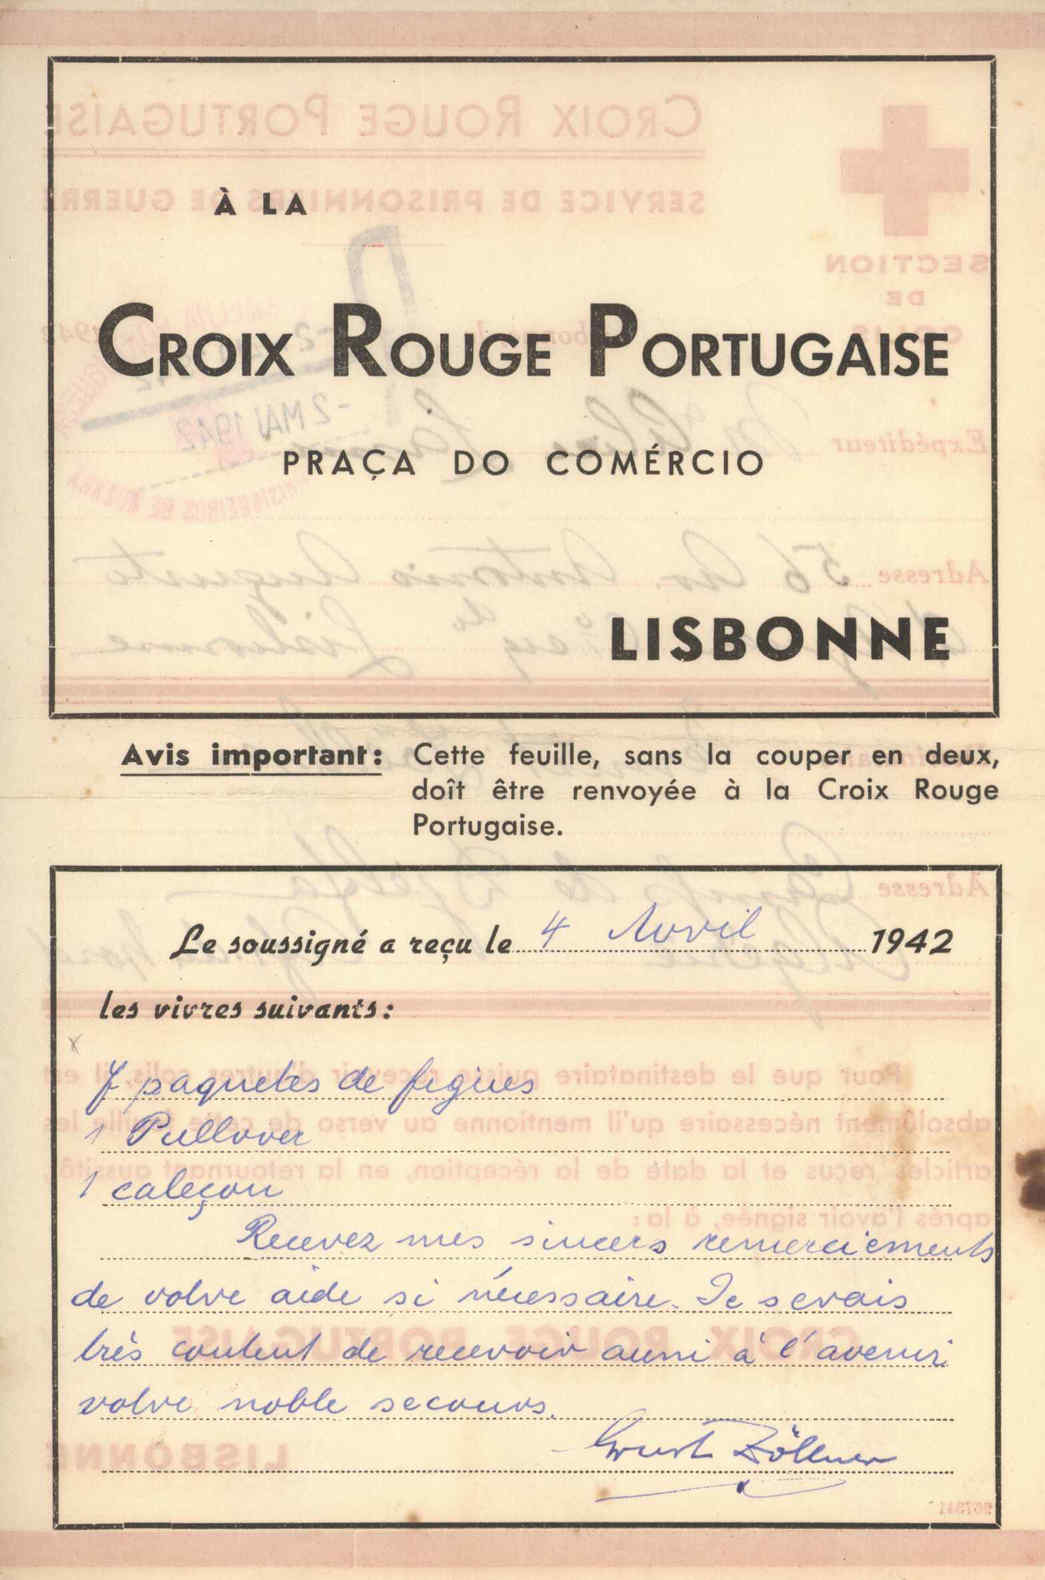 À LA
CROIX ROUGE PORTUGAISE
PRAÇA DO COMÉRCIO
LISBONNE
Avis important: Cette feuille, sans la couper en deux,
doît être renvoyée à la Croix Rouge
Portugaise.
Le soussigné a reçu le 4 Avril 1942
les vivres suivants:
7 paquetes de figues
1 Pullover
1 caleçon
Recevez mes sincers remerciements
de votre aide si nécessaire. Je serais
très content de recevoir aussi à l'avenir
votre noble secours.
Ernst Zöllner